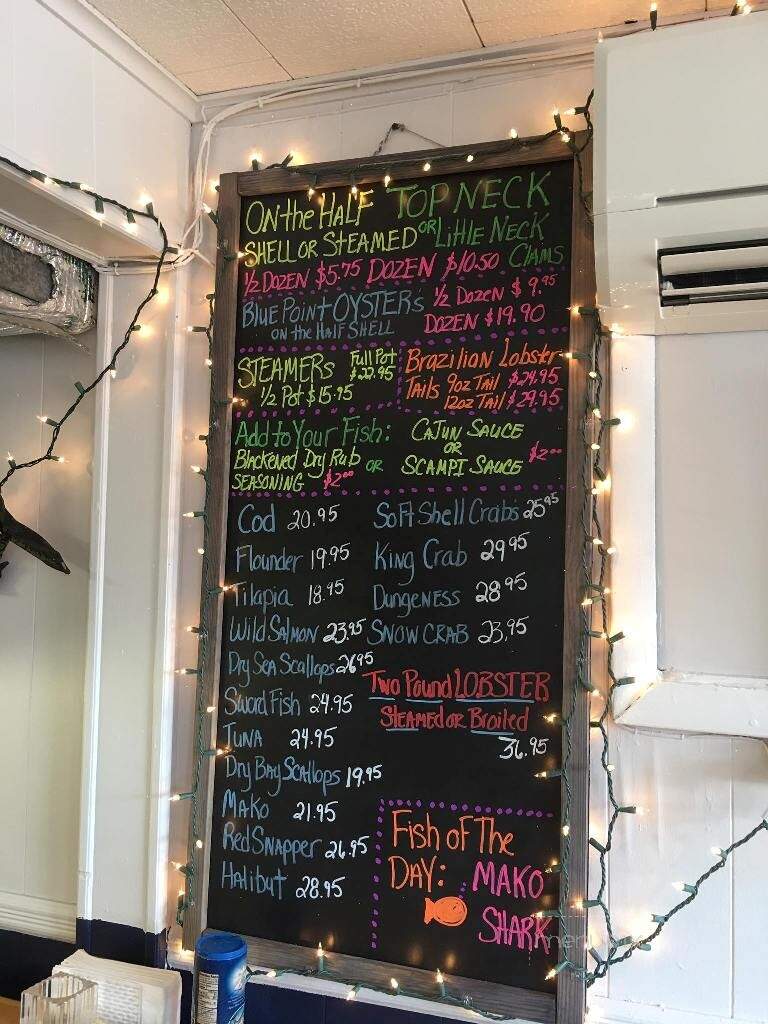 On the Half Top Neck
Shell or Steamed or Little Neck
Clams
1/2 Dozen $5.75 Dozen $10.50
Blue Point Oysters 1/2 Dozen $9.95
on the Half Shell Dozen $19.90
Steamers Full Pot $22.95
1/2 Pot $15.95
Brazilian Lobster
Tails 9oz Tail $24.95
12oz Tail $29.95
Add to Your Fish: Cajun Sauce
Blackened Dry Rub or or
Seasoning $2.00 Scampi Sauce $2.00
Cod 20.95
Flounder 19.95
Tilapia 18.95
Wild Salmon 23.95
Dry Sea Scallops 26.95
Sword Fish 24.95
Tuna 24.95
Dry Bay Scallops 19.95
Mako 21.95
Red Snapper 26.95
Halibut 28.95
Soft Shell Crabs 25.95
King Crab 29.95
Dungeness 28.95
Snow Crab 23.95
Two Pound Lobster
Steamed or Broiled
36.95
Fish of The
Day: Mako
Shark